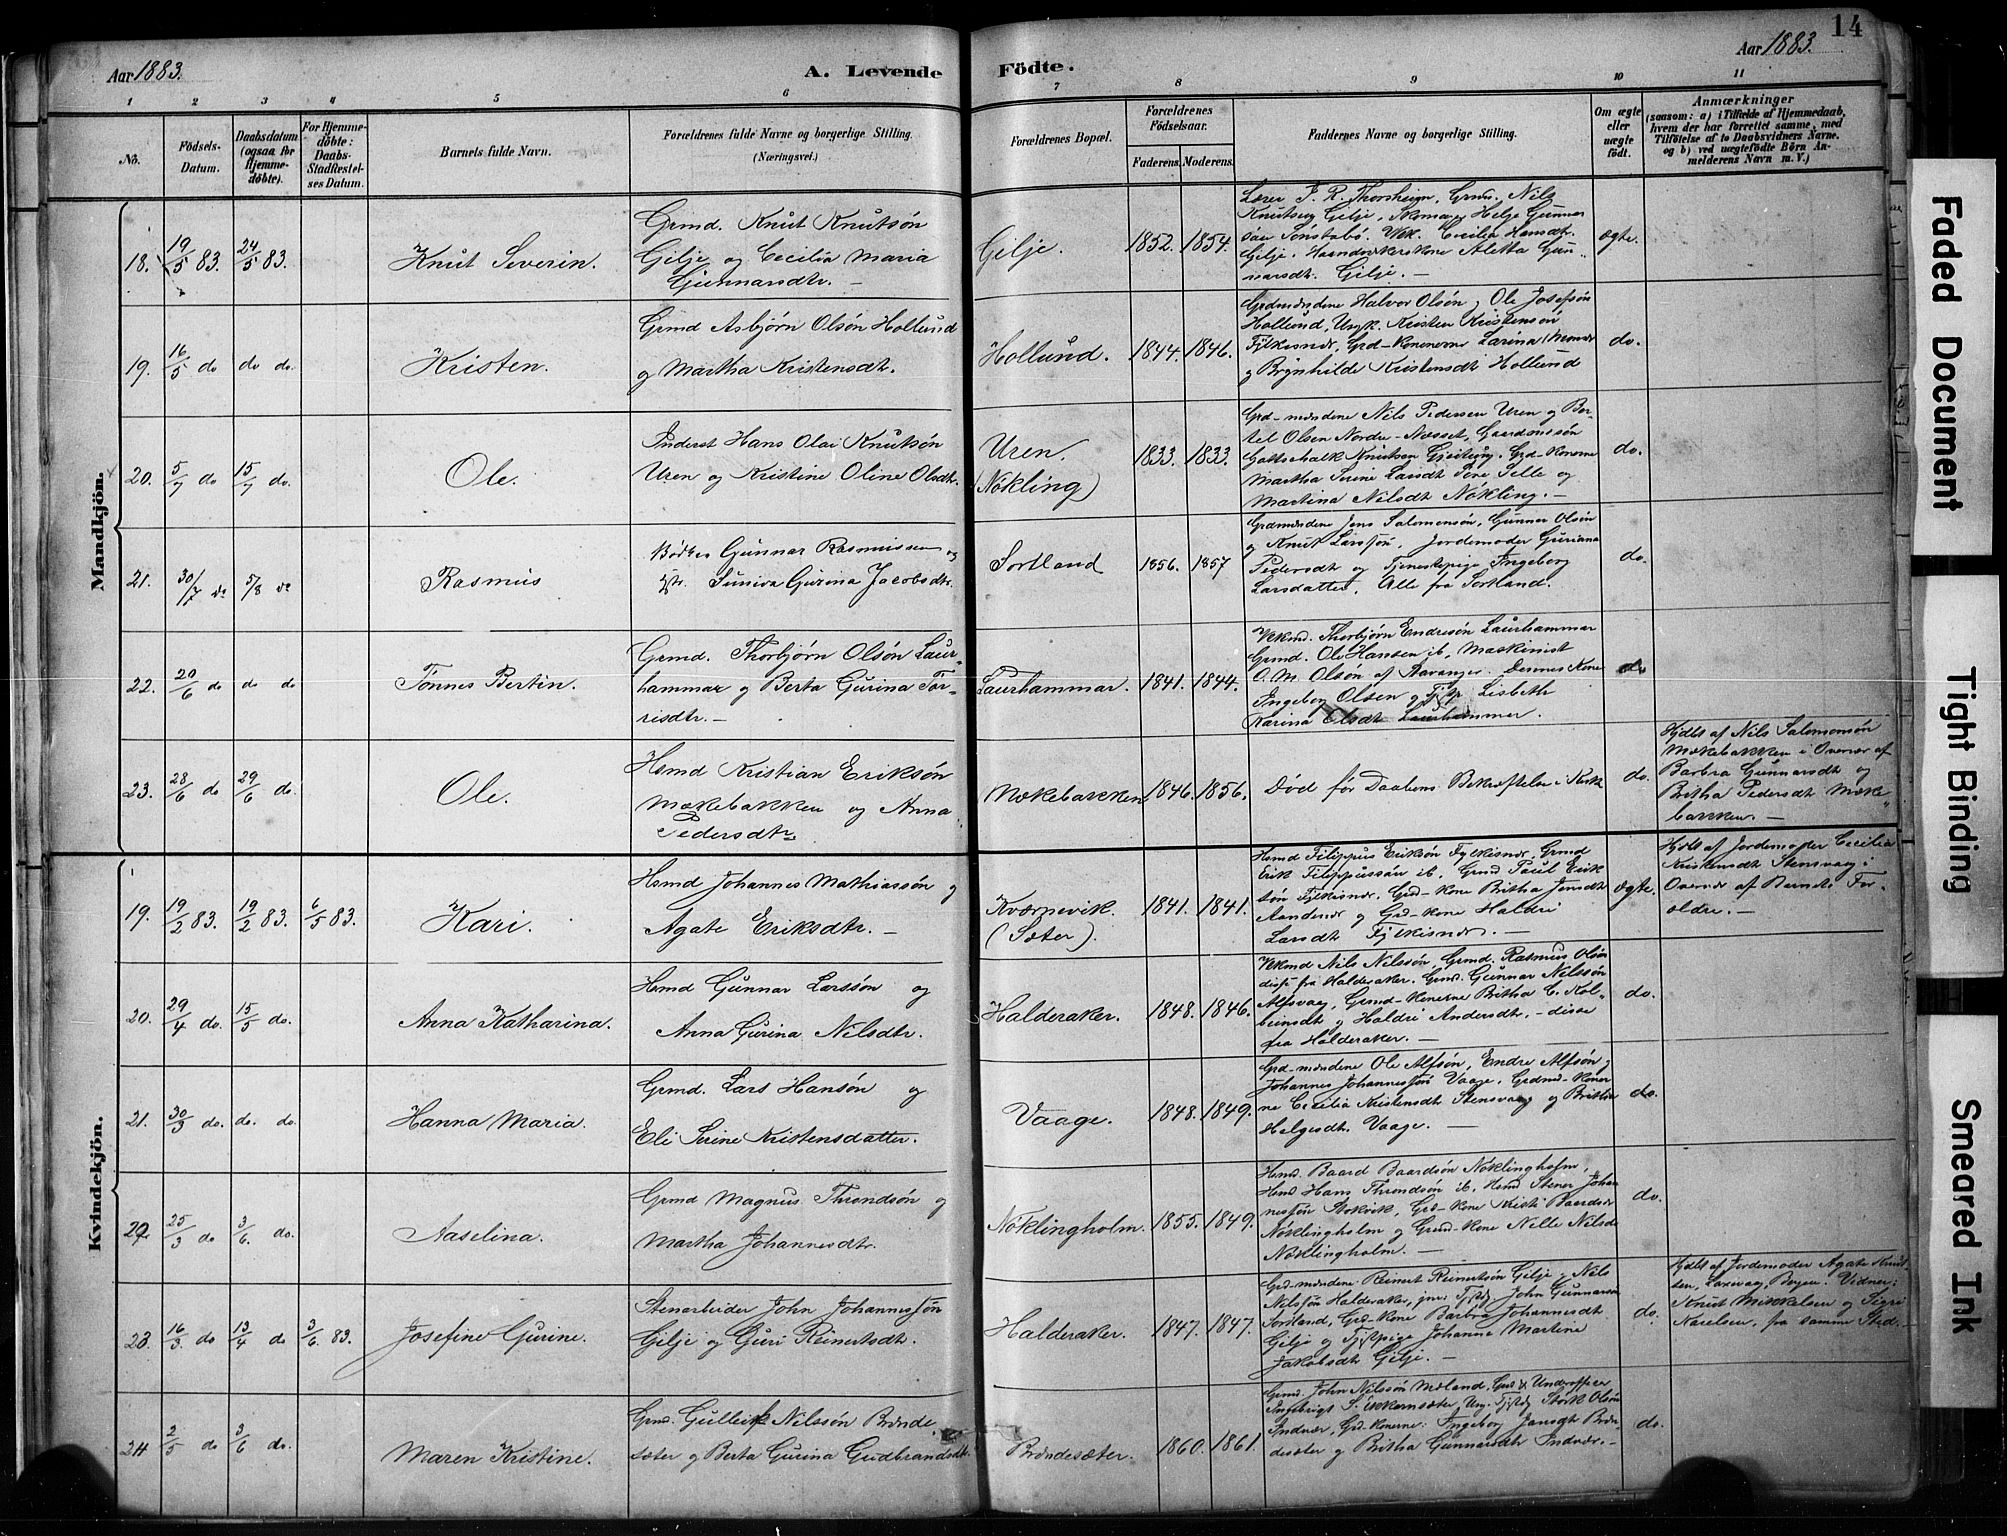 14
Aar 1883.
A. Levende
Födte.
Aar 1883.
1 2 3 4 5 6 7 8 9 10 11
No.
Födsels-
Datum.
Daabsdatum
(ogsaa for
Hjemme-
döbte).
For Hjemme-
döbte:
Daabs-
Stadfæstel-
ses Datum.
Barnets fulde Navn.
Forældrenes fulde Navne og borgerlige Stilling.
(Næringsvei.)
Forældrenes Bopæl.
Forældrenes
Födselsaar.
Faderens. Moderens.
Faddernes Navne og borgerlige Stilling.
Om ægte
eller
uægte
födt.
Anmærkninger
(saasom: a) i Tilfælde af Hjemmedaab,
hvem der har forrettet samme, med
Tilföielse af to Daabsvidners Navne.
og b) ved uægtefödte Börn An-
melderens Navn m. V.)
Mandkjön.
18. 19/5 83. 24/5 83. Knut Severin.
Grmd. Knut Knutsön
Gilje og Cecilia Maria
Gunnarsdtr. —
Gilje. 1852. 1854.
Lærer J. R. Thorsheim, Grmd. Nils
Knutsen Gilje, Skomag. Helge Gunnar
Gilje. —
ægte.
19. 16/5 do do do. Kristen.
Grmd Asbjörn Olsön Hollund
og Martha Kristensdtr.
Hollund. 1844. 1846.
Grdmændene Halvor Olsön, Ole Josefsön
Hollund, Ungk. Kristen Kristensön
og Brynhilde Kristensdt Hollund
do.
20. 5/7 do 15/7 do. Ole.
Inderst Hans Olai Knutsön
Uren og Kristine Oline Olsdtr.
Uren.
(Nökling) 1833. 1833.
Grd-mændene Nils Pedersen Uren og Ber-
tel Olsen Nordre-Næsset, Gaardmdsön
Gottschalk Knutsen
Martina Nilsdt Nökling. —
do.
21. 30/7 do 5/8 do Rasmus
Bödker Gunnar Rasmussen og
Suniva Gurina Jacobsdtr.
Sortland 1856. 1857
Grdmændene Jens Salomonsön, Gunnar Olsön
og Knut Larssön, Jordemoder Guriana
Pedersdt og Tjenestepige Ingeborg
Larsdatter, Alle fra Sortland.
do.
22. 20/6 do do do Tönnes Bertin.
Grmd. Thorbjörn Olsön Laur-
hammar og Berta Gurina Tor-
risdtr. —
Laurhammar. 1841. 1844.
Thorbjörn Endresön Laurhammar
Grmd. Ole Hansen ib, Maskinist
O. M. Olsön af Stavanger, Dennes Kone
Ingeborg Olsen og Lisbeth
Karina Olsdt Laurhammer.
do
23. 28/6 do 29/6 do. Ole.
Hsmd Kristian Eriksön
Mækebakken og Anna
Pedersdtr.
Mækebakken 1846. 1856.
Död för Daabens Bekræftelse i Kirke
do.
Hjdbt af Nils Salomonsön
Mækebakken i Overvær af
Barbra Gunnarsdt og
Britha Pedersdt Mæke-
bakken. —
Kvindekjön.
19. 19/2 83. 19/2 83. 6/5 83. Kari.
Hsmd Johannes Mathiassön og
Agate Eriksdtr. —
Kværnevik.
(Sæter). 1841. 1841.
Hsmd Filippus Eriksön Fylkisnæs, Grmd
Erik Filippussön ib, Grmd Paul Erik
sön Fylkisnæs, Grd-Kone Britha Jensdt
og Grd-Kone Haldri
Larsdt Fylkisnæs. —
ægte.
Hjdbt af Jordemoder Cecilia
Kristensdt Stensvaag i
Overvær af Barnets For-
ældre. —
20. 29/4 do. 15/5 do. Anna Katharina.
Hsmd Gunnar Larssön og
Anna Gurina Nilsdtr.
Halderaker. 1848. 1846.
Nils Nilssön, Grmd. Rasmus Olsön
disse fra Halderaker. Grmd. Gunnar Nilssön
Alfsvaag, Grmd-Konerne Britha C. Kol-
beinsdt og Haldri Andersdtr. — disse
fra Halderaker. —
do.
21. 30/3 do. do. do. Hanna Maria.
Grmd. Lars Hansön og
Eli Serine Kristensdatter.
Vaage. 1848. 1849.
Grd-mændene Ole Alfsön, Endre Alfsön og
Johannes Johannessön Vaage, Grdmd-Koner
ne Cecilia Kristensdt Stensvaag og Britha
Helgesdt Vaage. —
do.
22. 25/3 do 3/6. do. Aaselina.
Grmd Magnus Throndsön og
Martha Johannesdtr.
Nöklingholm. 1855. 1849.
Hsmd. Baard Baardsön Nöklingholm,
Hsmd Hans Throndsön ib, Hsmd Stener Johan
nessön Stokvik, Grd-Kone Kristi Baardsdr
Nöklingholm og Grmd-Kone Nille Nilsdr
Nöklingholm. —
do.
23. 16/3. do 13/4 do 3/6. 83. Josefine Gurine.
Stenarbeider John Johannessön
Gilje og Guri Reinertsdt.
Halderaker. 1847. 1847.
Grd-mændene Reinert Reinertsön Gilje, Nils
Nilssön Halderaker, John Gunnarsen
Sortland, Grd-Kone Barbra Johannesdt
Gilje og Johanne Martine
Jakobsdt Gilje. —
do.
Hjdbt af Jordemoder Agate Knut
sen, Laxevaag, Bergen. Vidner:
Knut Mikkelsen og Sigri
Karelsen, fra samme Sted. —
24. 2/5 do 3/6 do. Maren Kristine.
Grmd. Gulleik Nilssön Brænde-
sæter og Berta Gurina Gudbrandsdt.
Brændesæter. 1860. 1861.
Grmd. John Nilssön Mæland,
Indvær, Grd-Konerne: Ingeborg Jansdt Bræn-
desæter og Britha Gunnarsdt Indvær. —
do.
Faded Document
Tight Binding
Smeared Ink